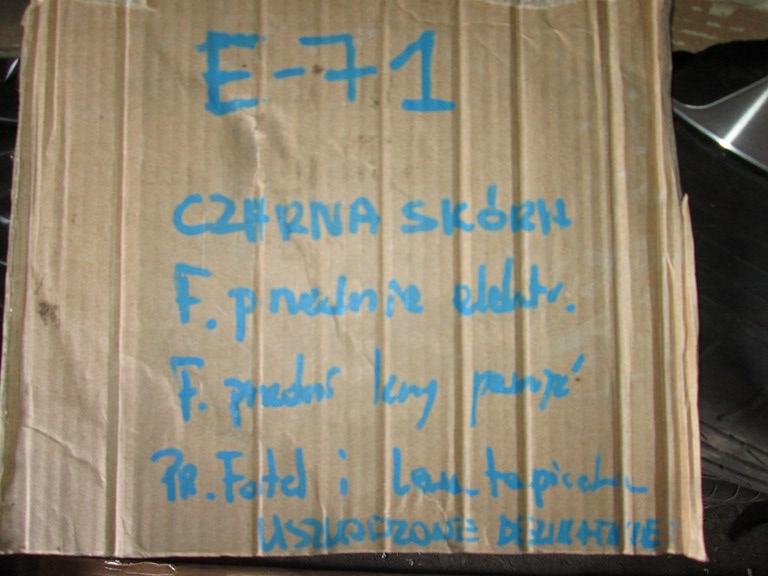 E-71
CZARNA SKÓRA
F. przednie elektr.
F. przedni lewy pamięć
PR. Fotel i lewa tapicerka
USZKODZONE DELIKATNIE